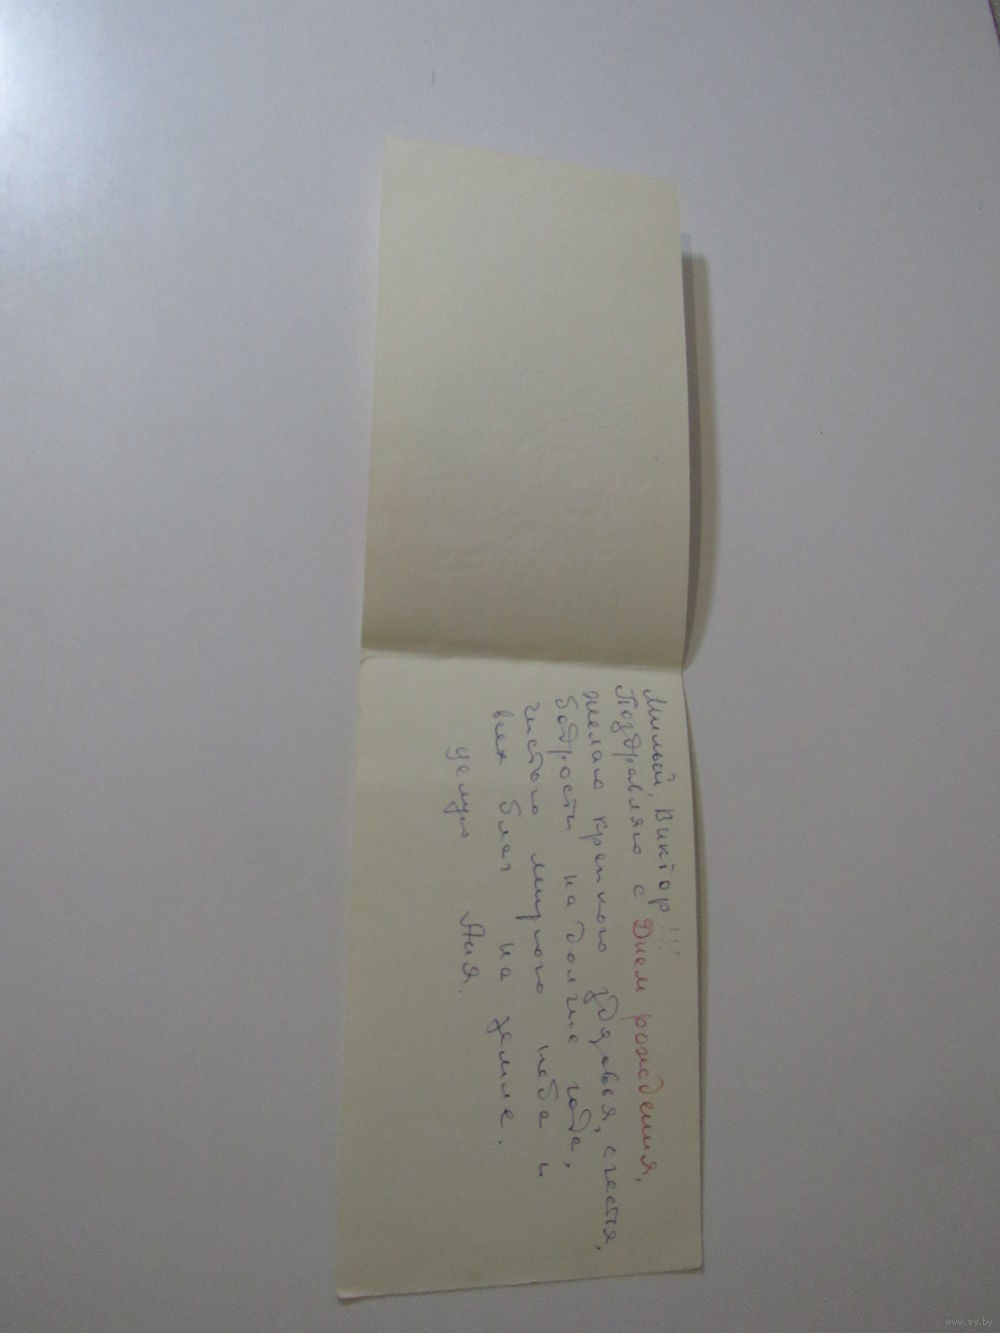 Милый, Виктор!!!
Поздравляю с Днем рождения,
желаю крепкого здоровья, счастья,
бодрости на долгие года,
чистого мирного неба и
всех благ на земле.
Целую Аня.
www.ay.by